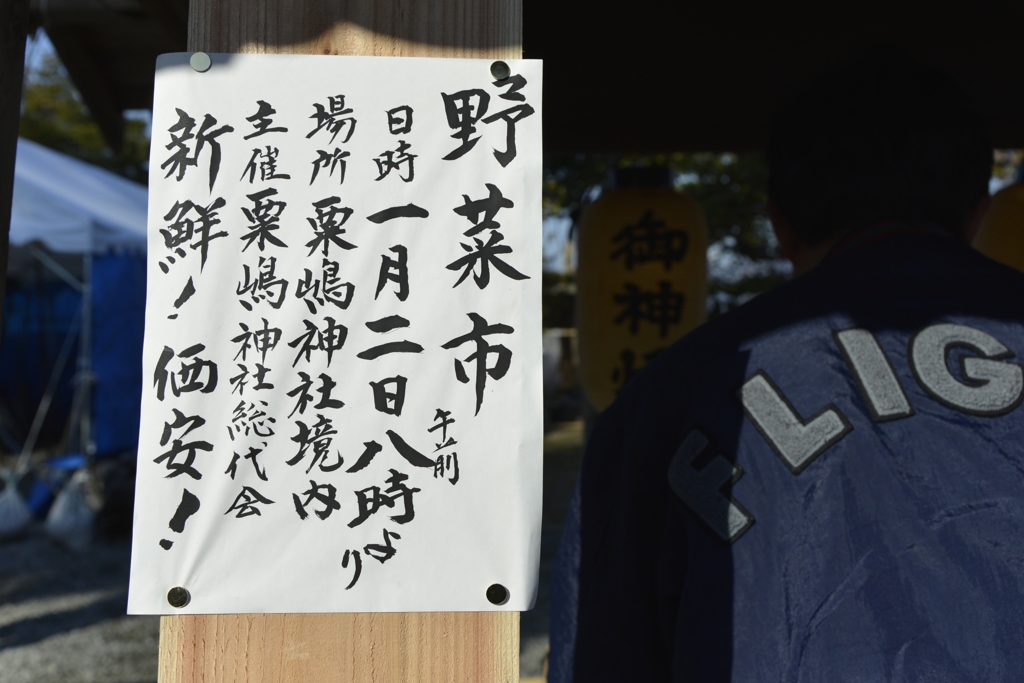 野菜市
日時 一月二日午前八時より
場所 粟嶋神社境内
主催 粟嶋神社総代会
新鮮！価安！
御神
FLIG